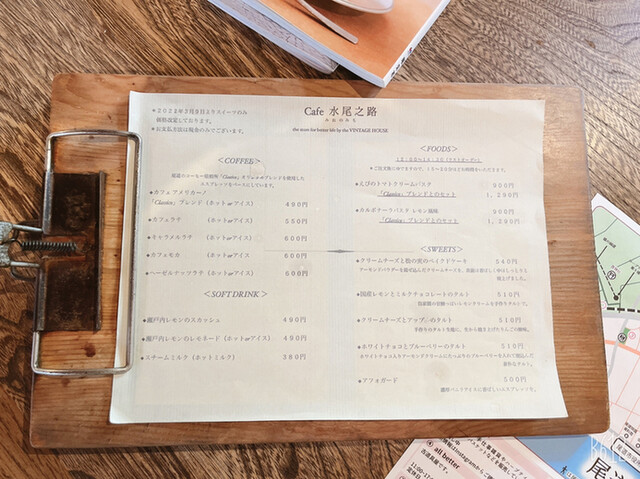 *2022年3月9日よりスイーツのみ
価格改定しております。
*お支払方法は現金のみでございます。
Cafe 水尾之路
みおのみち
the store for better life by the VINTAGE HOUSE
<COFFEE>
エスプレッソをベースにしています。
◆カフェアメリカーノ
「Classico」ブレンド (ホットorアイス) 490円
◆カフェラテ (ホットorアイス) 550円
◆キャラメルラテ (ホットorアイス) 600円
◆カフェモカ (ホットorアイス) 600円
◆ヘーゼルナッツラテ (ホットorアイス) 600円
<SOFT DRINK>
◆瀬戸内レモンのスカッシュ 490円
◆瀬戸内レモンのレモネード (ホットorアイス) 490円
◆スチームミルク (ホットミルク) 380円
<FOODS>
◆えびのトマトクリームパスタ 900円
「Classico」ブレンドとのセット 1,290円
◆カルボナーラパスタ レモン風味 900円
「Classico」ブレンドとのセット 1,290円
<SWEETS>
◆クリームチーズと松の実のベイクドケーキ 540円
◆国産レモンとミルクチョコレートのタルト 510円
◆クリームチーズとアップルのタルト 510円
◆ホワイトチョコとブルーベリーのタルト 510円
◆アフォガード 500円
濃厚バニラアイスに香ばしいエスプレッソを。
all better
尾道